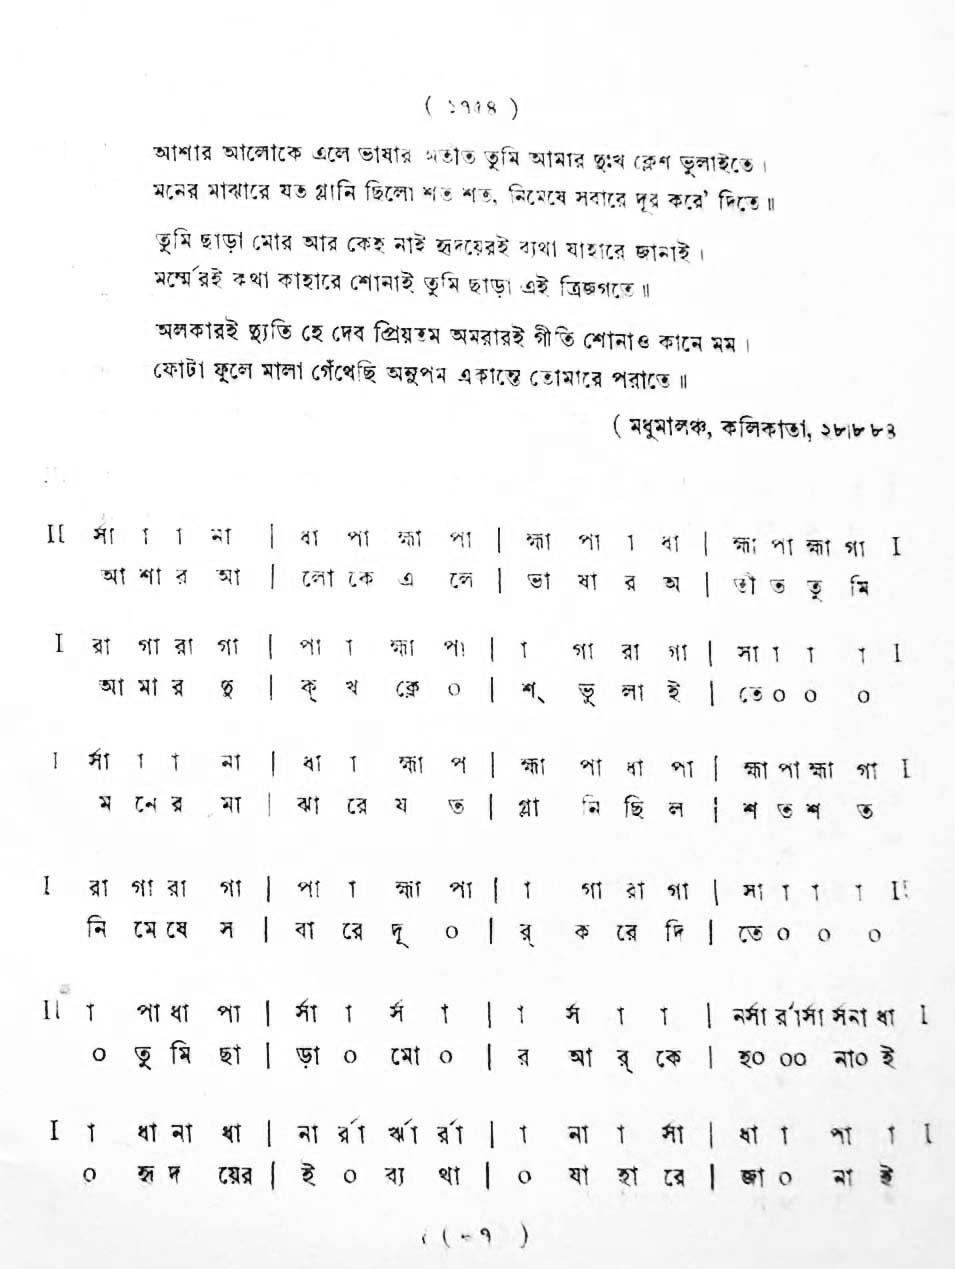 আশার আলোকে এলে ভাষার অতীত তুমি আমার দুঃখ ক্লেশ ভুলাইতে।
মনের মাঝারে যত গ্লানি ছিলো শত শত, নিমেষে সবারে দূর করে' দিতে॥
তুমি ছাড়া মোর আর কেহ নাই হৃদয়েরই ব্যথা যাহারে জানাই।
মর্ম্মেরই কথা কাহারে শোনাই তুমি ছাড়া এই ত্রিজগতে॥
অলকারই দ্যুতি হে দেব প্রিয়তম অমরারই গীতি শোনাও কানে মম।
ফোটা ফুলে মালা গেঁথেছি অনুপম একান্তে তোমারে পরাতে॥
( মধুমালঞ্চ, কলিকাতা,
II র্সা া া না | ধা পা হ্মা পা | হ্মা পা া ধা | হ্মা পা হ্মা গা I
আ শা র আ | লো কে এ লে | ভা ষা র অ | তী ত তু মি
I রা গা রা গা | পা া হ্মা পা | া গা রা গা | সা া া া I
আ মা র দু | ক্ খ ক্লে ০ | শ্ ভু লা ই | তে ০ ০ ০
I র্সা া া না | ধা া হ্মা প | হ্মা পা ধা পা | হ্মা পা হ্মা গা I
ম নে র মা | ঝা রে য ত | গ্লা নি ছি ল | শ ত শ ত
I রা গা রা গা | পা া হ্মা পা | া গা রা গা | সা া া া II
নি মে ষে স | বা রে দূ ০ | র্ ক রে দি | তে ০ ০ ০
II া পা ধা পা | র্সা া র্স া | া র্স া া | নর্সা র্রা র্সা র্সনা ধা I
০ তু মি ছা | ড়া ০ মো ০ | র আ র্ কে | হ০ ০০ না০ ই
I া ধা না ধা | না র্রা র্ঝা র্রা | া না া র্সা | ধা া পা া I
০ হৃ দ য়ের | ই ০ ব্য থা | ০ যা হা রে | জা ০ না ই